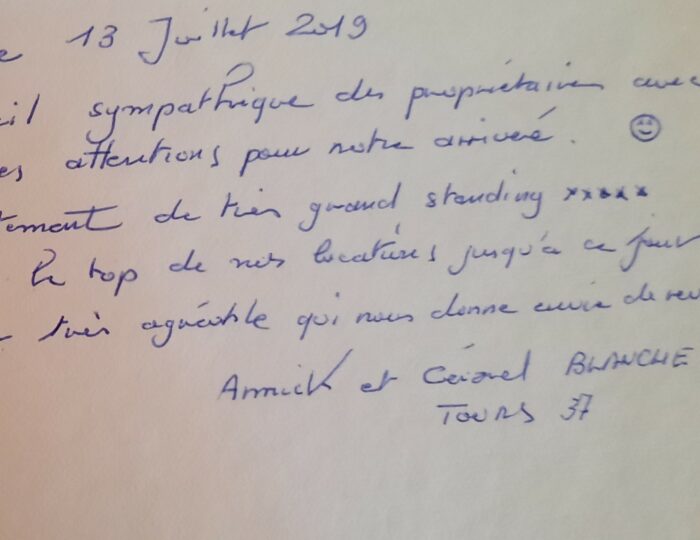 e 13 Juillet 2019
il sympathique des propriétaires avec
es attentions pour notre arriveé. ☺
tement de très grand standing xxxxx
le top de nos locations jusqu'à ce jour
très agréable qui nous donne envie de rev
Annick et BLANCHE
TOURS 37